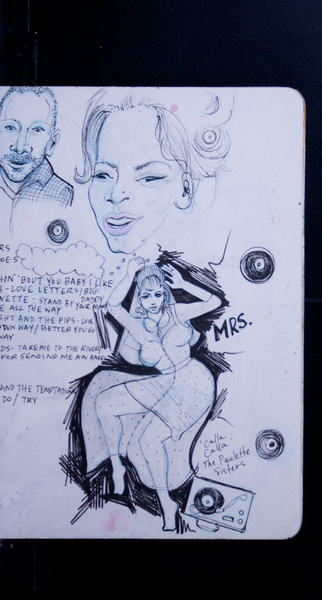 RS
OES
HIN' 'BOUT YOU BABY I LIKE
A - LOVE LETTERS / BIG
NETTE - STAND BY YOUR MAN
DADDY
E ALL THE WAY
GHT AND THE PIPS -
WN WAY / BETTER YOU GO
WAY
DS - TAKE ME TO THE RIVER /
FOR SENDING ME AN ANGEL
AND THE TEMPTATIONS
DO / TRY
MRS.
'Calla
Calla
The Paulette
Sisters